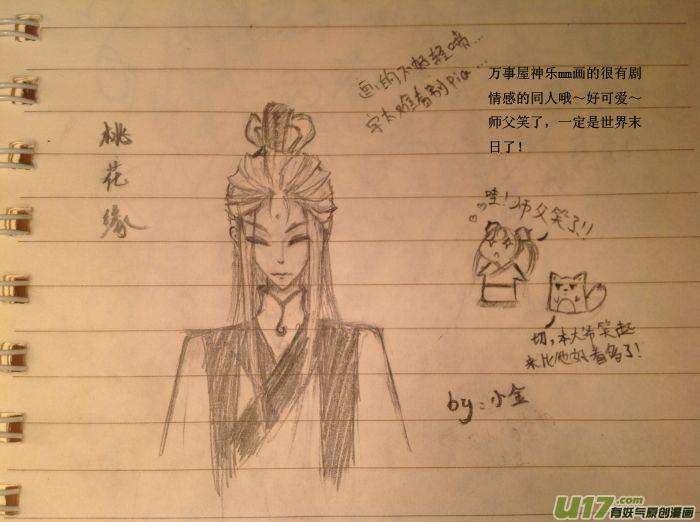 桃花缘
画的不好轻喷...
字太难看别Pia...
万事屋神乐mm画的很有剧
情感的同人哦～好可爱～
师父笑了，一定是世界末
日了！
哇！师父笑了！！
切，本大爷笑起
来比他好看多了！
by：小金
U17.com
有妖气原创漫画